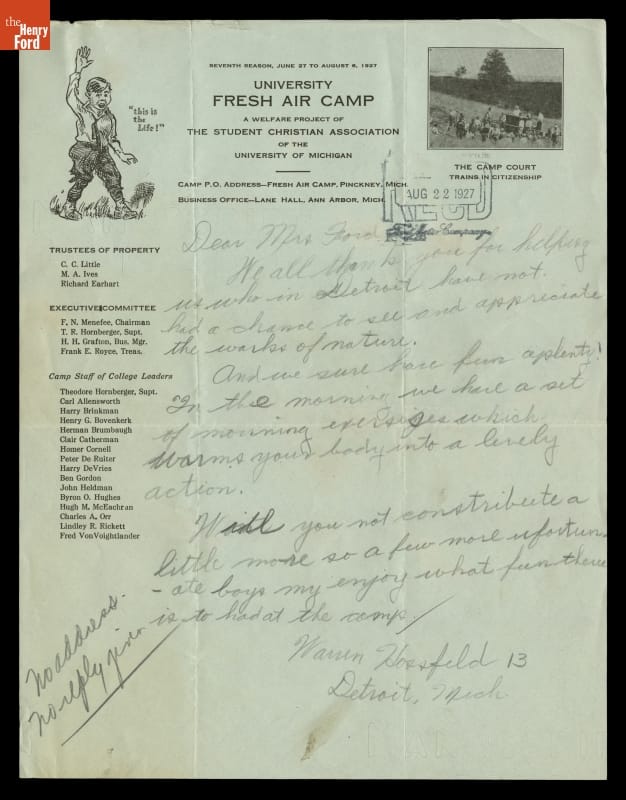 the
Henry
Ford
"this is
the
Life!"
SEVENTH SEASON, JUNE 27 TO AUGUST 6, 1927
UNIVERSITY
FRESH AIR CAMP
A WELFARE PROJECT OF
THE STUDENT CHRISTIAN ASSOCIATION
OF THE
UNIVERSITY OF MICHIGAN
CAMP P.O. ADDRESS—FRESH AIR CAMP, PINCKNEY, MICH.
BUSINESS OFFICE—LANE HALL, ANN ARBOR, MICH.
THE CAMP COURT
TRAINS IN CITIZENSHIP
AUG 22 1927
REC'D
Company
TRUSTEES OF PROPERTY
C. C. Little
M. A. Ives
Richard Earhart
EXECUTIVE COMMITTEE
F. N. Menefee, Chairman
T. R. Hornberger, Supt.
H. H. Grafton, Bus. Mgr.
Frank E. Royce, Treas.
Camp Staff of College Leaders
Theodore Hornberger, Supt.
Carl Allensworth
Harry Brinkman
Henry G. Bovenkerk
Herman Brumbaugh
Clair Catherman
Homer Cornell
Peter De Ruiter
Harry DeVries
Ben Gordon
John Heldman
Byron O. Hughes
Hugh M. McEachran
Charles A. Orr
Lindley R. Rickett
Fred VonVoightlander
Dear Mrs Ford
We all thank you for helping
us who in Detroit have not
had a chance to see and appreciate
the works of nature.
And we sure have fun aplenty!
In the morning we have a set
of morning exersizes which
warms your body into a lively
action.
Will you not constribute a
little more so a few more ufortun
-ate boys my enjoy what fun there
is to had at the camp.
Warren Hossfeld 13
Detroit, Mich
No address.
No reply given